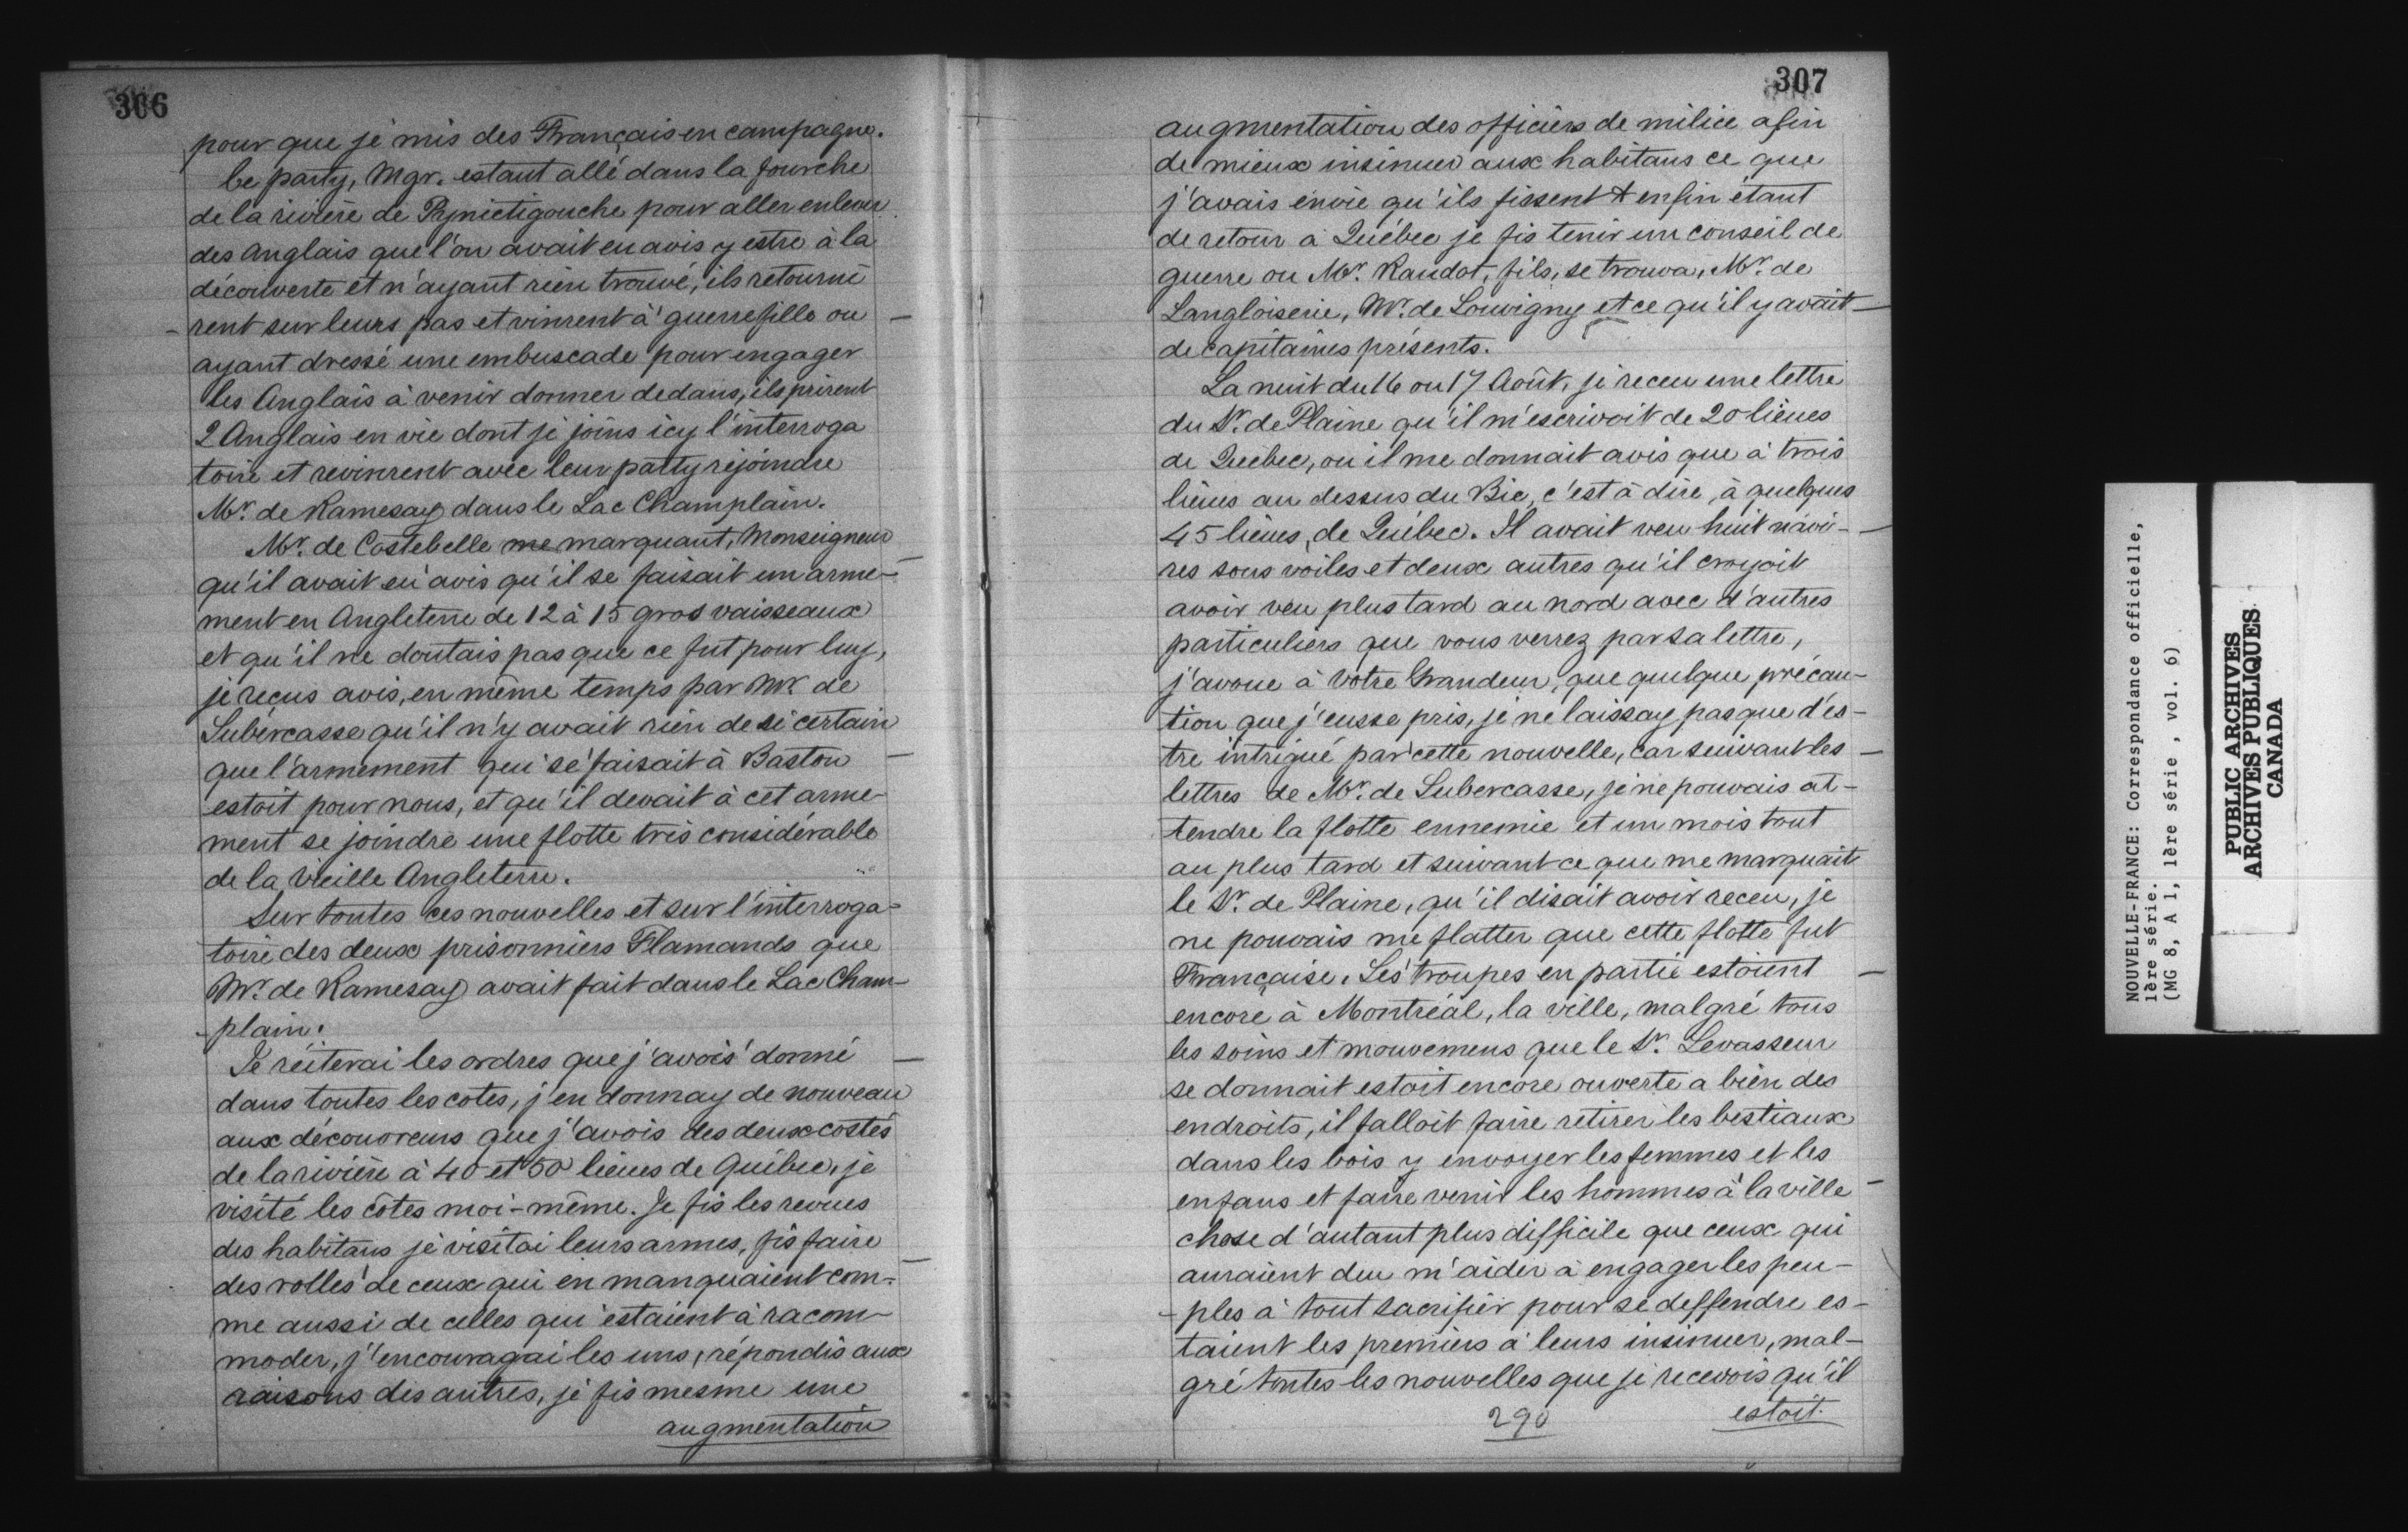 306
pour que je mis des Français en campagne.
Ce party, Mgr. estant allé dans la fourche
de la rivière de Pymictigouche pour aller enlever
des Anglais que l'on avait eu avis y estre à la
découverte et n'ayant rien trouvé, ils retourne
-rent sur leurs pas et vinrent à guerrefille ou -
ayant dressé une embuscade pour engager
les Anglais à venir donner dedans, ils prirent
2 Anglais en vie dont je joins icy l'interroga
toire et revinrent avec leur patty rejoindre
Mr. de Ramesay dans le Lac Champlain.
Mr. de Costebelle me marquant, Monseigneur
qu'il avait eu avis qu'il se faisait un arme-
ment en Angleterre de 12 à 15 gros vaisseaux
et qu'il ne doutais pas que ce fut pour luy,
je reçus avis, en même temps par Mr. de
Subercasse qu'il n'y avait rien de si certain
que l'armement qui se faisait à Baston -
estoit pour nous, et qu'il devait à cet arme-
ment se joindre une flotte très considérable
de la Vieille Angleterre.
Sur toutes ces nouvelles et sur l'interroga-
toire des deux prisonniers Flamands que
Mr. de Ramesay avait fait dans le Lac Cham-
-plain.
Je réiterai les ordres que j'avois donné -
dans toutes les cotes, j'en donnay de nouveau
aux découvreurs que j'avois des deux costés
de la rivière à 40 et 50 lieues de Québec, je
visité les côtes moi-même. Je fis les revues
des habitans je visitai leurs armes, fis faire
des rolles de ceux qui en manquaient com-
me aussi de celles qui estaient à racom-
moder, j'encouragai les uns, répondis aux
raisons des autres, je fis mesme une
augmentation
307
augmentation des officiers de milice afin
de mieux insinuer aux habitans ce que
j'avais envie qu'ils fissent & enfin étant
de retour à Québec je fis tenir un conseil de
guerre ou Mr. Raudot, fils, se trouva, Mr. de
Langloiserie, Mr. de Louvigny et ce qu'il y avait -
de capitaines présents.
La nuit du 16 ou 17 Août, je receu une lettre
du Sr. de Plaine qu'il m'escrivoit de 20 lieues
de Quebec, ou il me donnait avis que à trois
lieues au dessus du Bic, c'est à dire, à quelques
45 lieues, de Québec. Il avait veu huit navi- -
res sous voiles et deux autres qu'il croyoit
avoir veu plus tard au nord avec d'autres
particuliers que vous verrez par sa lettre,
j'avoue à Votre Grandeur, que quelque précau-
tion que j'eusse pris, je ne laissay pas que d'es-
tre intrigué par cette nouvelle, car suivant les -
lettres de Mr. de Subercasse, je ne pouvais at-
tendre la flotte ennemie et un mois tout
au plus tard et suivant ce que me marquait
le Sr. de Plaine, qu'il disait avoir receu, je
ne pouvais me flatter que cette flotte fut
Française. Les troupes en partie estoient -
encore à Montréal, la ville, malgré tous
les soins et mouvemens que le Sr. Levasseur
se donnait estoit encore ouverte a bien des
endroits, il falloit faire retirer les bestiaux
dans les bois y envoyer les femmes et les
enfans et faire venir les hommes à la ville -
chose d'autant plus difficile que ceux qui
auraient deu m'aider à engager les peu-
-ples à tout sacrifier pour se deffendre es-
taient les premiers à leurs insinuer, mal-
gré toutes les nouvelles que je recevois qu'il
290
estoit.
NOUVELLE-FRANCE: Correspondance officielle,
1ère série.
(MG 8, A 1, 1ère série , vol. 6)
PUBLIC ARCHIVES
ARCHIVES PUBLIQUES
CANADA